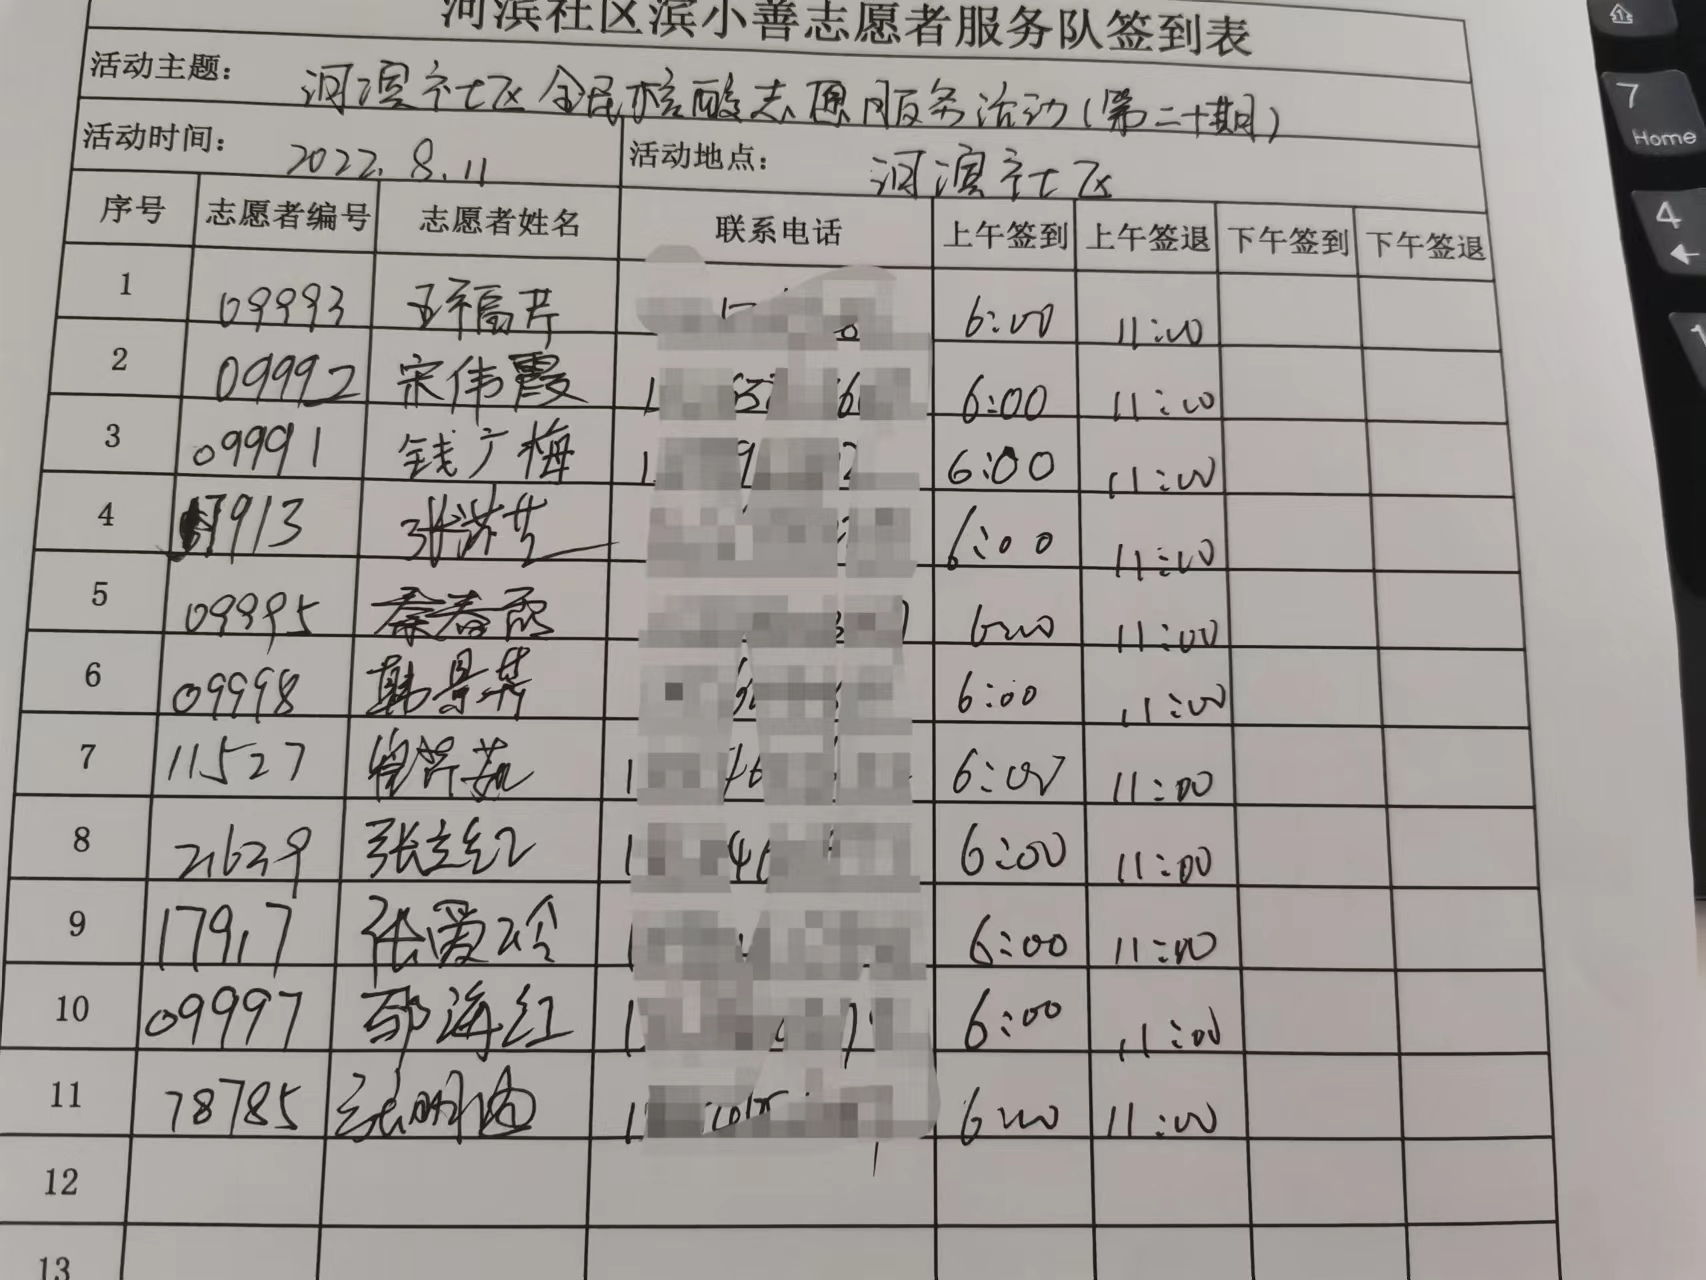 河滨社区滨小善志愿者服务队签到表
活动主题： 河滨社区全民核酸志愿服务活动(第二十期)
活动时间： 2022.8.11 活动地点： 河滨社区
序号 志愿者编号 志愿者姓名 联系电话 上午签到 上午签退 下午签到 下午签退
1 09993 6:00 11:00
2 09992 宋伟霞 6:00 11:00
3 09991 钱广梅 6:00 11:00
4 913 6:00 11:00
5 09995 秦春丽 6:00 11:00
6 09998 韩景英 6:00 11:00
7 11527 6:00 11:00
8 21629 张立红 6:00 11:00
9 17917 张爱玲 6:00 11:00
10 09997 邵海红 6:00 11:00
11 78785 6:00 11:00
12
13
7
Home
4